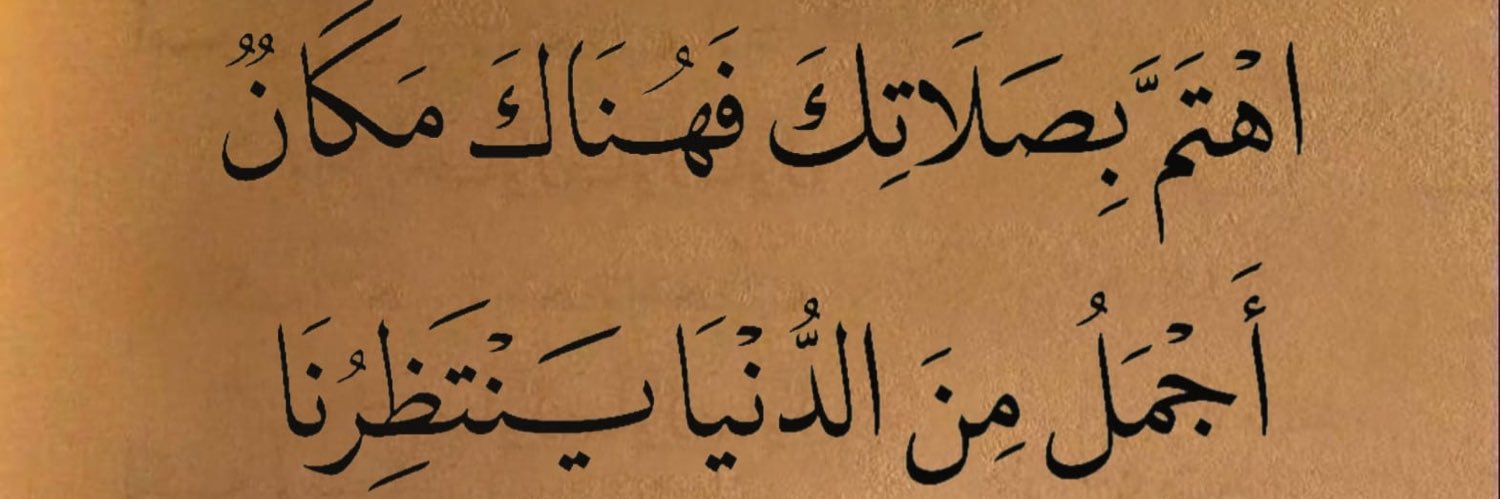 اهْتَمَّ بِصَلَاتِكَ فَهُنَاكَ مَكَانٌ
أَجْمَلُ مِنَ الدُّنْيَا يَنْتَظِرُنَا